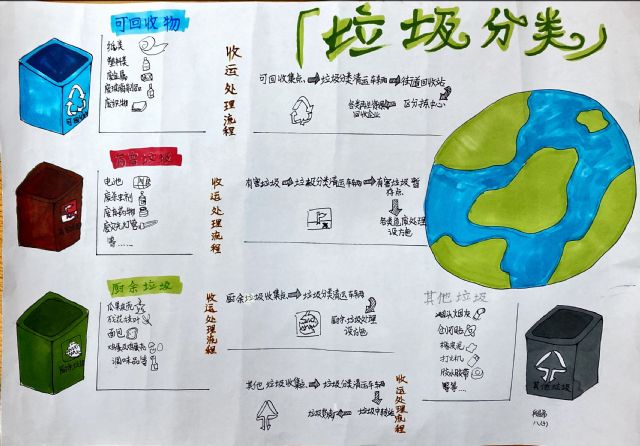 「垃圾分类」
可回收物
纸类
塑料类
废金属
废玻璃制品
废织物
收运处理流程
可回收集点
垃圾分类清运车辆
街道回收站
区分拣中心
回收企业
有害垃圾
电池
废杀虫剂
等……
收运处理流程
有害垃圾
垃圾分类清运车辆
有害垃圾暂存点
各类危废处理设施
厨余垃圾
瓜果皮壳
残花枝叶
面包
鸡蛋及鸡蛋壳
调味品等
厨余垃圾
收运处理流程
厨余垃圾收集点
垃圾分类清运车辆
厨余垃圾处理设施
其他垃圾
创可贴
橡皮泥
打火机
胶水胶带
等等……
其他垃圾
收运处理流程
其他垃圾收集点
垃圾分类清运车辆
垃圾中转站
垃圾焚烧